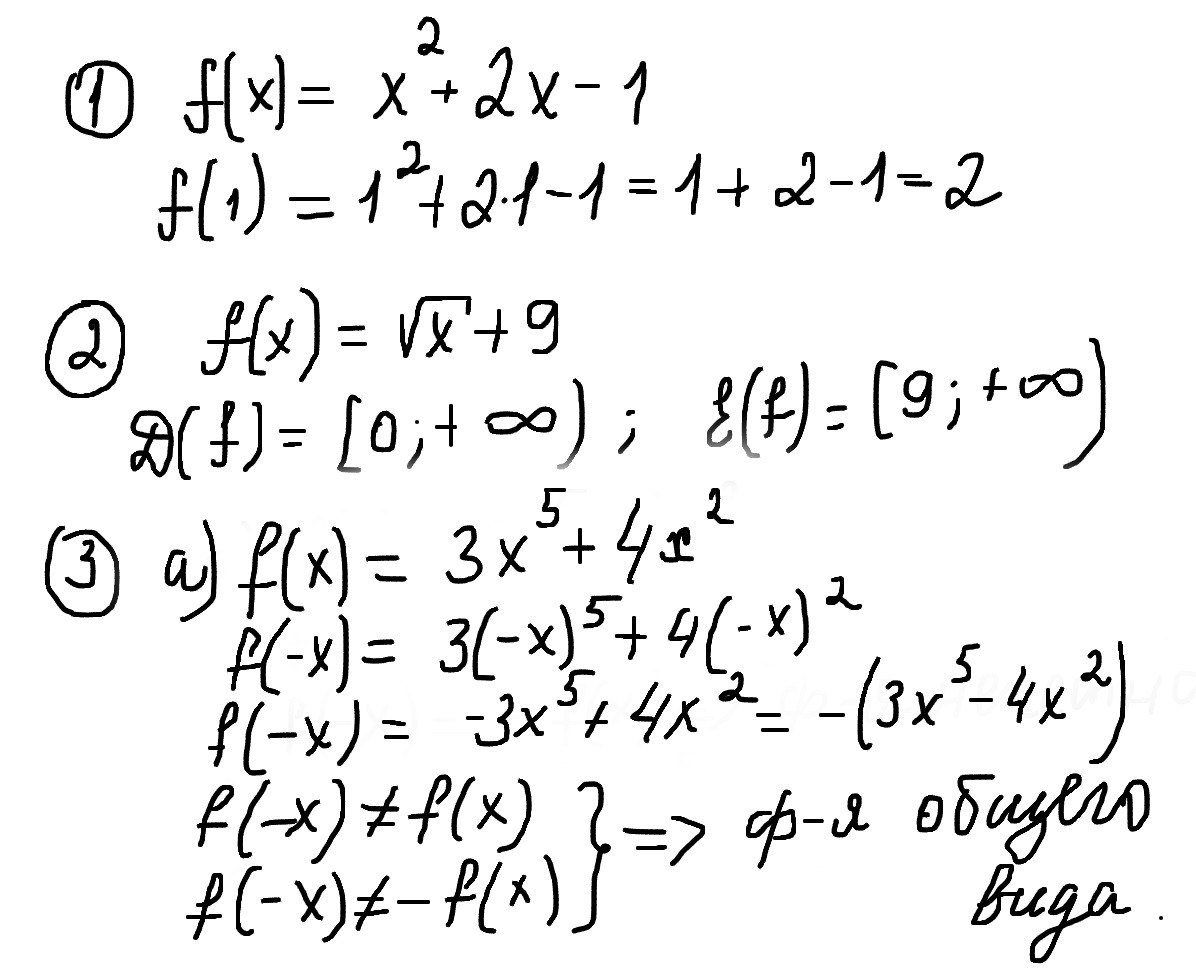 ① f(x) = x² + 2x - 1
f(1) = 1² + 2·1 - 1 = 1 + 2 - 1 = 2
② f(x) = √x + 9
D(f) = [0; + ∞) ; E(f) = [9; + ∞)
③ а) f(x) = 3x⁵ + 4x²
f(-x) = 3(-x)⁵ + 4(-x)²
f(-x) = -3x⁵ + 4x² = -(3x⁵ - 4x²)
f(-x) ≠ f(x) } => ф-я общего
f(-x) ≠ - f(x) } вида.